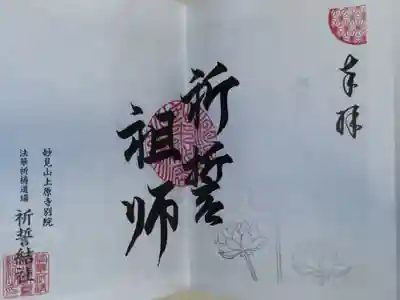 奉拝
祈誓
祖师
妙見山上原寺別院
法華祈祷道場
祈誓結社